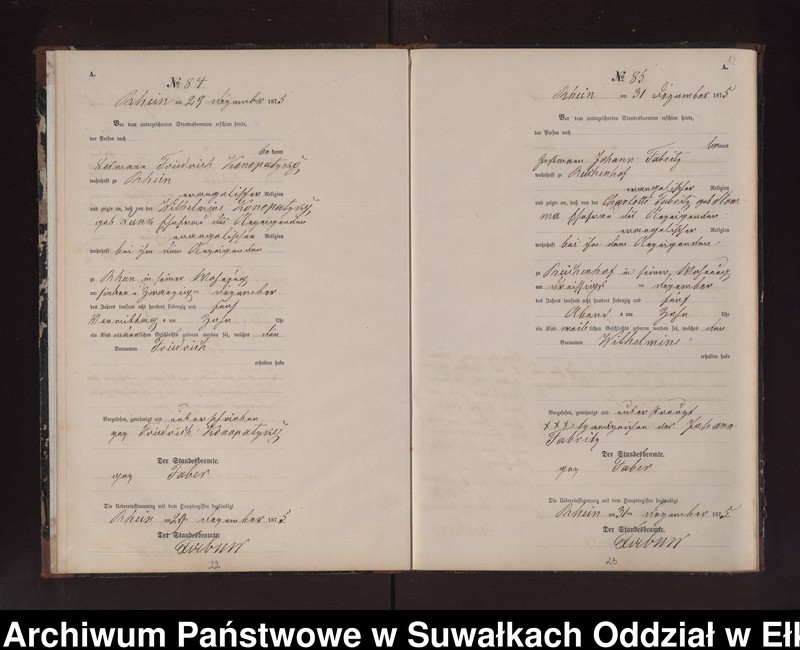 A.
№ 84.
Rhein am 29 Dezember 1875
Vor dem unterzeichneten Standesbeamten erschien heute,
der Person nach
be kannt
Friedrich Konopatzky
wohnhaft zu Rhein
evangelischer Religion
und zeigte an, daß von der Wilhelmine Konopatzky
geb Ehefrau des Anzeigenden
evangelischer Religion
wohnhaft bei ihm dem Anzeigenden
zu Rhein in seiner Wohnung
am Dezember
des Jahres tausend acht hundert siebenzig und fünf
Vormittag s um Zehn Uhr
ein Kind männlichen Geschlechts geboren worden sei, welches den
Vornamen Friedrich
erhalten habe
Vorgelesen, genehmigt und unterschrieben
gez Friedrich Konopatzky
Der Standesbeamte.
gez Faber
Die Uebereinstimmung mit dem Hauptregister beglaubigt
Rhein am 29 Dezember 1875
Der Standesbeamte.
22
A.
№ 85
Rhein am 31 Dezember 1875
Vor dem unterzeichneten Standesbeamten erschien heute,
der Person nach
bekannt
Johann Fabritz
wohnhaft zu Reichenhof
evangelischer Religion
und zeigte an, daß von der Charlotte Fabritz geb
Ehefrau des Anzeigenden
evangelischer Religion
wohnhaft bei ihm dem Anzeigenden
zu Reichenhof in seiner Wohnung
am dreissigst en Dezember
des Jahres tausend acht hundert siebenzig und fünf
Abend s um Zehn Uhr
ein Kind weiblichen Geschlechts geboren worden sei, welches den
Vornamen Wilhelmine
erhalten habe
Vorgelesen, genehmigt und unterkreuzt
xxx Handzeichen des Johann
Fabritz
Der Standesbeamte.
gez Faber
Die Uebereinstimmung mit dem Hauptregister beglaubigt
Rhein am 31ten Dezember 1875
Der Standesbeamte.
23
Archiwum Państwowe w Suwałkach Oddział w Ełk